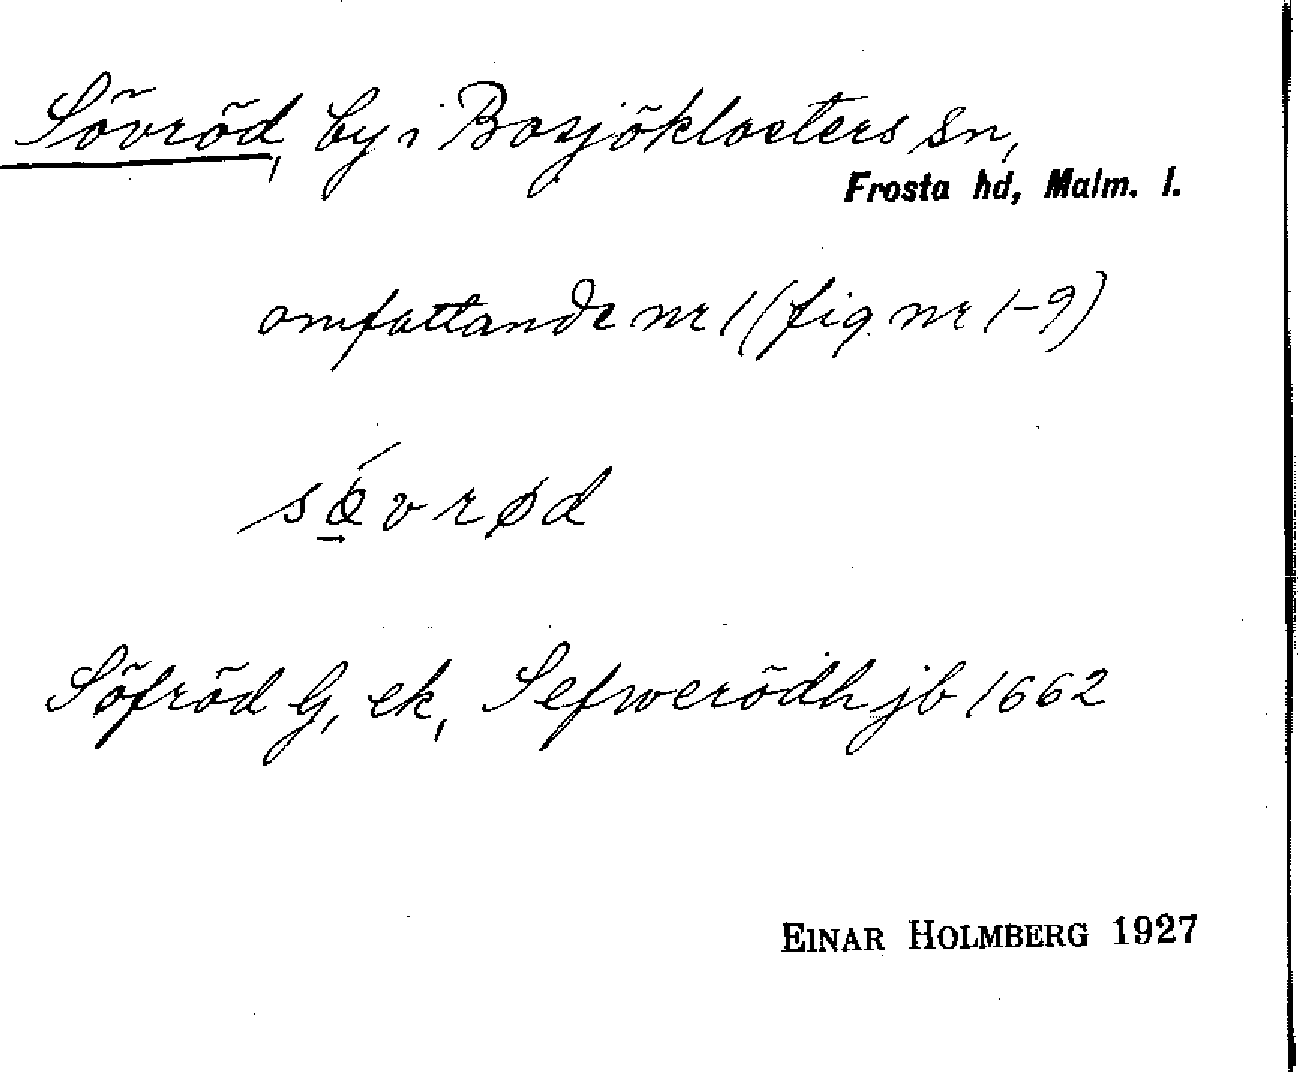 Sövröd, by i Bosjöklosters sn,
Frosta hd, Malm. l.
omfattande nr 1 (fig. nr 1-9)
sǿvrød
Söfröd G, ek, Sefwerödh jb 1662
EINAR HOLMBERG 1927